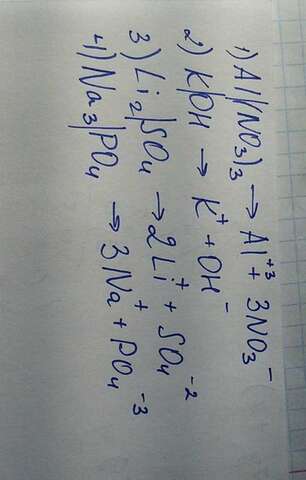 1) Al|(NO₃)₃ → Al⁺³ + 3NO₃⁻
2) K|OH → K⁺ + OH⁻
3) Li₂|SO₄ → 2Li⁺ + SO₄⁻²
4) Na₃|PO₄ → 3Na⁺ + PO₄⁻³